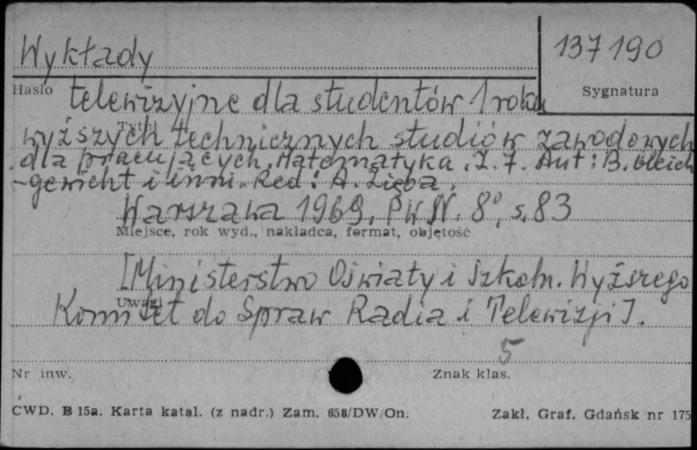 Wykłady
137190
Hasło
Sygnatura
telewizyjne dla studentów 1 roku
Tytuł
wyższych technicznych studiów zawodowych
dla pracujących. Matematyka. Z. 7. Aut: B. Gleich-
-gewicht i inni. Red: A. Zięba.
Warszawa 1969. PWN. 8°, s. 83
Miejsce, rok wyd., nakładca, format, objętość
[Ministerstwo Oświaty i Szkoln. Wyższego
Uwagi
Komitet do Spraw Radia i Telewizji].
5
Nr inw.
Znak klas.
CWD. B 15a. Karta katal. (z nadr.) Zam. 658/DW/On.
Zakł. Graf. Gdańsk nr 175